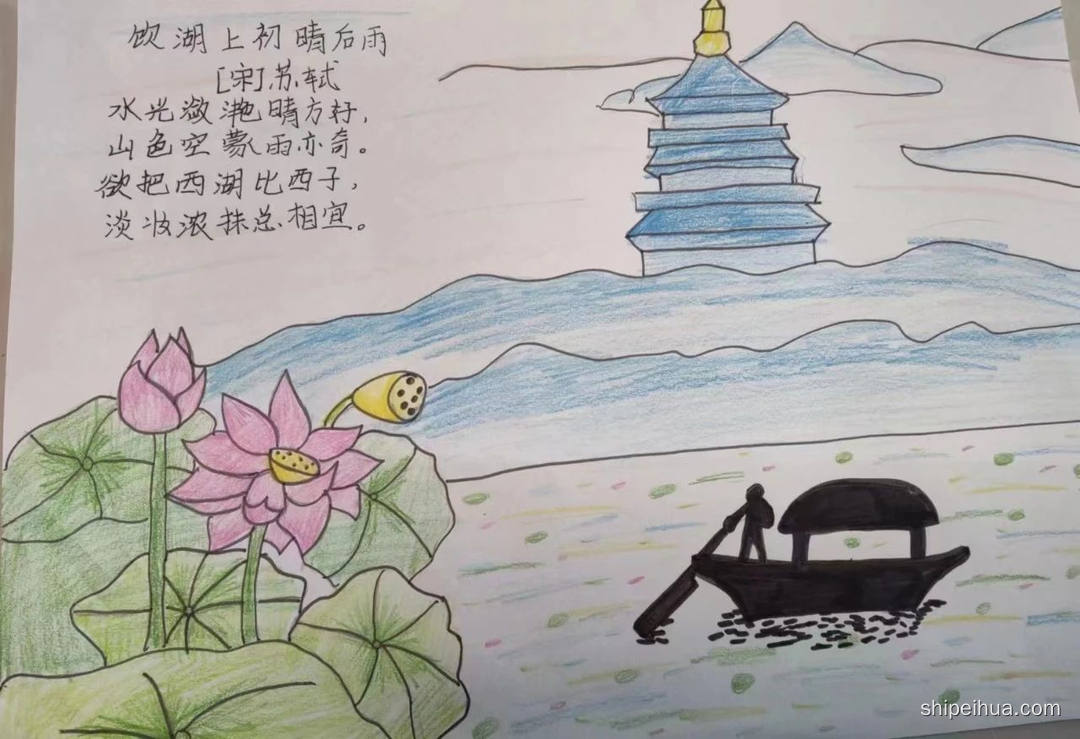 饮湖上初晴后雨
[宋]苏轼
水光潋滟晴方好，
山色空蒙雨亦奇。
欲把西湖比西子，
淡妆浓抹总相宜。
shipeihua.com